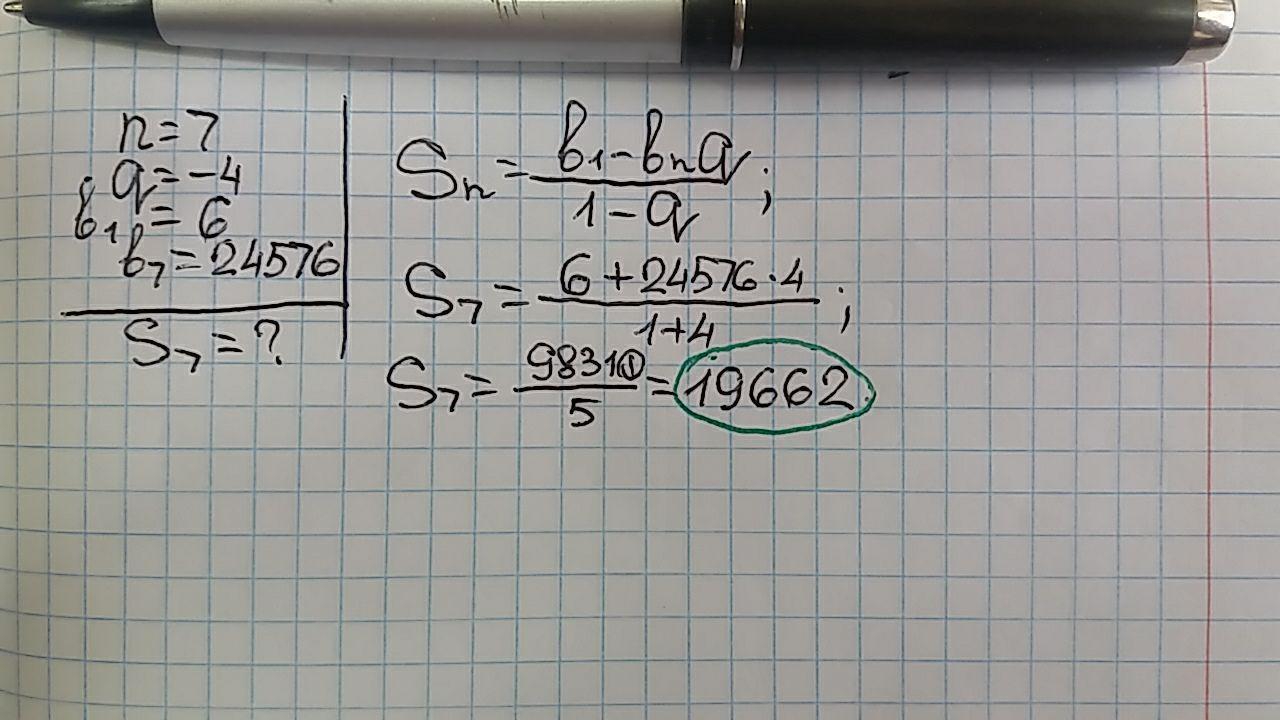 n=7
q=-4
b₁=6
b₇=24576
S₇=?
Sₙ = (b₁-bₙq)/(1-q);
S₇ = (6+24576·4)/(1+4);
S₇ = 98310/5 = 19662